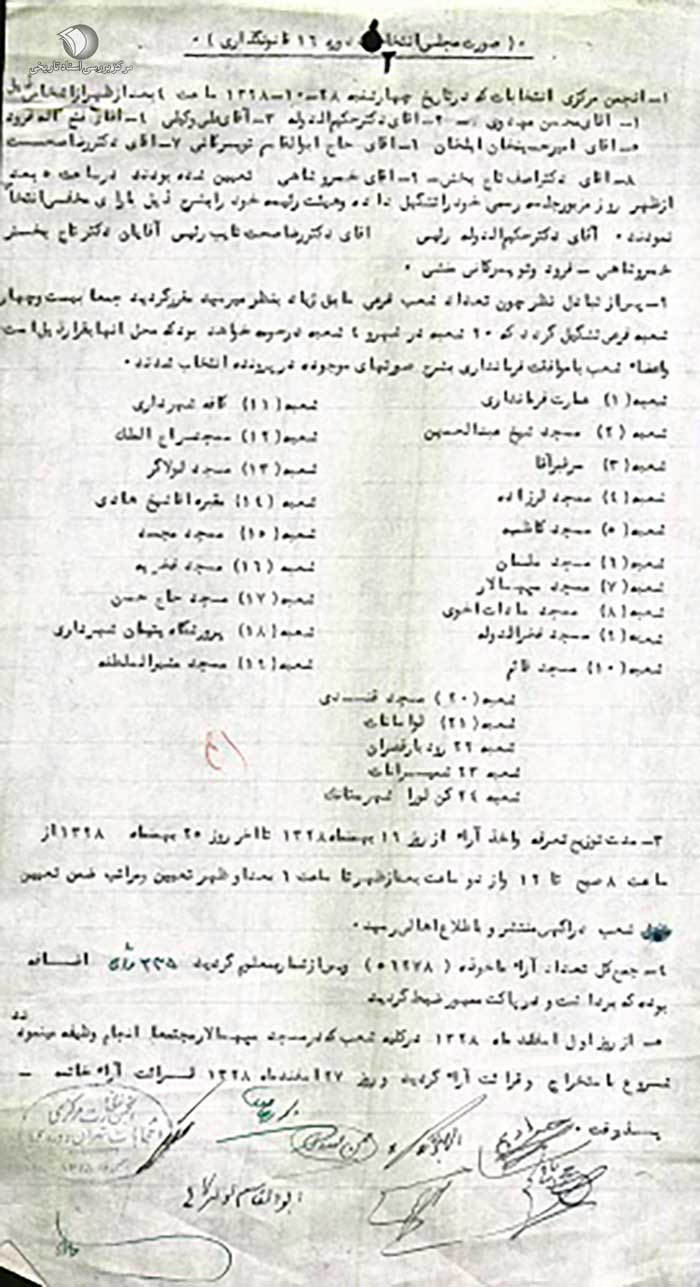 مرکز بررسی اسناد تاریخی
( صورت مجلس انتخابات دوره ١٦ قانونگذاری )
١- انجمن مرکزی انتخابات که در تاریخ چهارشنبه ٢٨-١٠-١٣٢٨ ساعت ٤ بعد از ظهر از انتخاب
١- آقای محسن مهدوی ٢- آقای دکتر حکیم الدوله ٣- آقای علی وکیلی ٤- آقای فتح اله فرود
٥- آقای امیرحسینخان ایلخان ٦- آقای حاج ابوالقاسم تویسرکانی ٧- آقای دکتر رضا صحت
٨- آقای دکتر آصف تاج بخش - ٩- آقای خسروشاهی تعیین شده بودند در ساعت ٥ بعد
از ظهر روز مزبور جلسه رسمی خود را تشکیل داده و هیئت رئیسه خود را بشرح ذیل با رأی مخفی انتخاب
نمودند. آقای دکتر حکیم الدوله رئیس آقای دکتر رضا صحت نایب رئیس آقایان دکتر تاج بخش
خسروشاهی - فرود و تویسرکانی منشی .
٢- پس از تبادل نظر چون تعداد شعب فرعی سابق زیاد بنظر میرسید مقرر گردید جمعا بیست و چهار
شعبه فرعی تشکیل گردد که ٢٠ شعبه در شهر و ٤ شعبه در حومه خواهد بود که محل آنها بقرار ذیل است
واعضاء شعب با موافقت فرمانداری بشرح صورتهای موجوده در پرونده انتخاب شدند .
شعبه (١) عمارت فرمانداری
شعبه (٢) مسجد شیخ عبدالحسین
شعبه (٣) سرقبرآقا
شعبه (٤) مسجد لرزاده
شعبه (٥) مسجد کاظمیه
شعبه (٦) مسجد سلمان
شعبه (٧) مسجد سپهسالار
شعبه (٨) مسجد سادات اخوی
شعبه (٩) مسجد فخرالدوله
شعبه (١٠) مسجد قائم
شعبه (١١) کافه شهرداری
شعبه (١٢) مسجد سراج الملک
شعبه (١٣) مسجد لولاگر
شعبه (١٤) مقبره آقا شیخ هادی
شعبه (١٥) مسجد مجد
شعبه (١٦) مسجد فخریه
شعبه (١٧) مسجد حاج حسن
شعبه (١٨) پرورشگاه یتیمان شهرداری
شعبه (١٩) مسجد مشیرالسلطنه
شعبه (٢٠) مسجد قندی
شعبه (٢١) لواسانات
شعبه ٢٢ رودبار قصران
شعبه ٢٣ شمیرانات
شعبه ٢٤ کن لورا شهرستانک
٣- مدت توزیع تعرفه و اخذ آراء از روز ١٦ بهمنماه ١٣٢٨ تا آخر روز ٢٥ بهمنماه ١٣٢٨ از
ساعت ٨ صبح تا ١٢ و از دو ساعت بعد از ظهر تا ساعت ٦ بعد از ظهر تعیین و مراتب ضمن تعیین
شعب در آگهی منتشر و باطلاع اهالی رسید .
٤- جمع کل تعداد آراء ماخوذه (٥٦٢٧٨) و پس از شمارش معلوم گردید ٢٣٥ رأی اضافه
بوده که برداشت و در پاکت ممهور ضبط گردید
٥- از روز اول اسفند ماه ١٣٢٨ در کلیه شعب که در مسجد سپهسالار مجتمعا انجام وظیفه مینمودند
شروع باستخراج و قرائت آراء گردید و روز ٢٧ اسفندماه ١٣٢٨ قرائت آراء خاتمه -
پذیرفت .